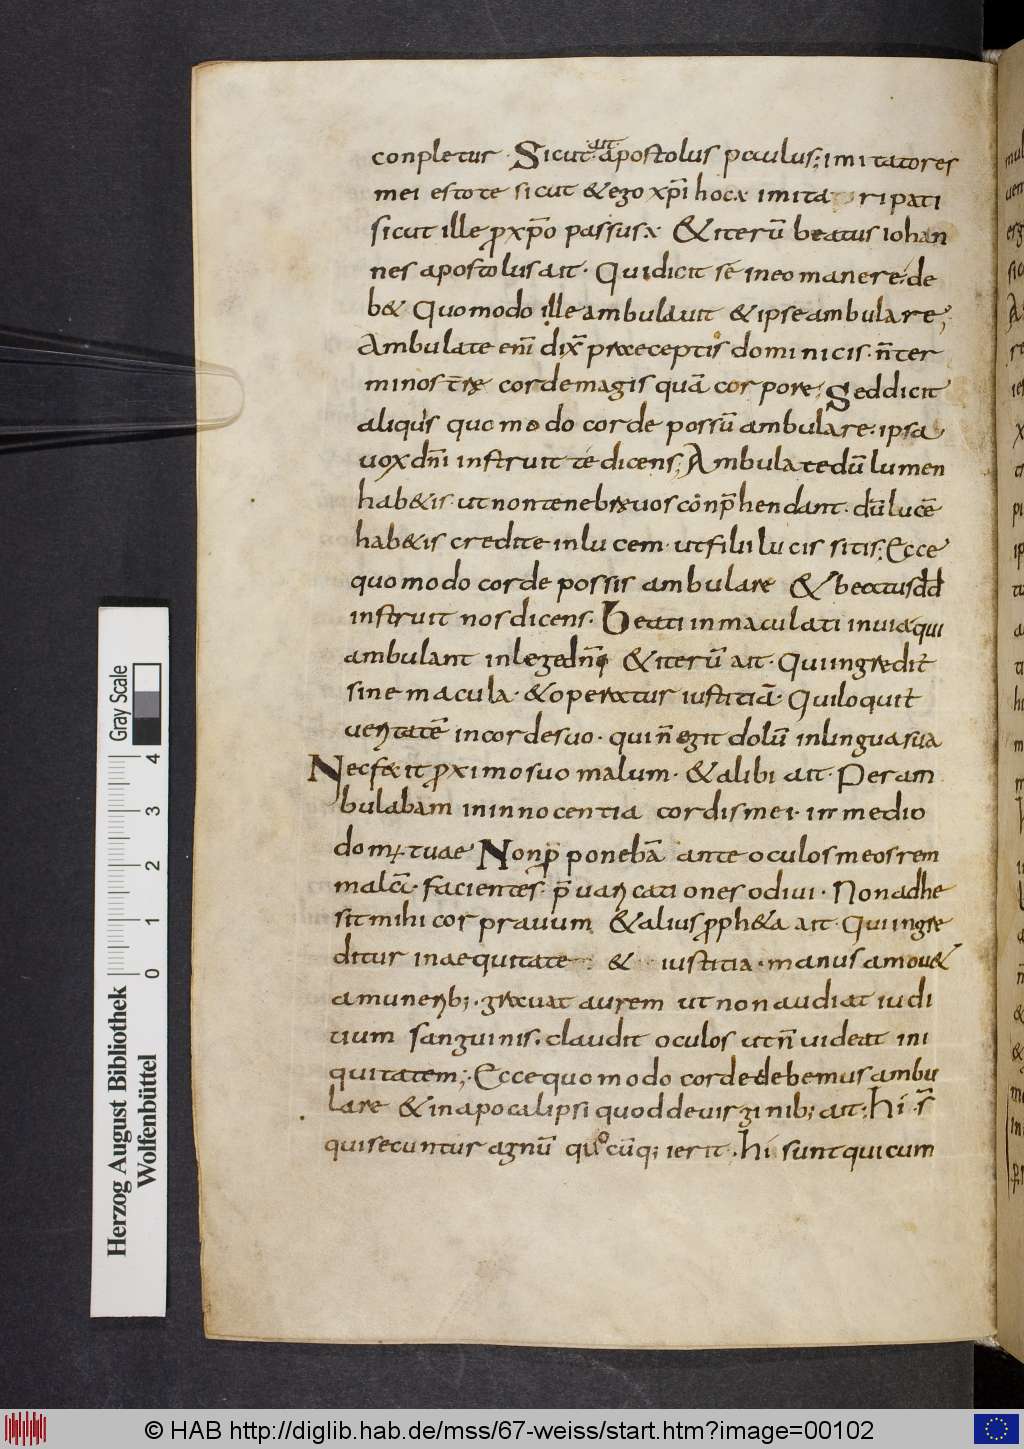 conpletur · Sicut ait apostolus paulus; imitatores
mei estote sicut & ego xp̄i hoc ÷ imitatori pati
sicut ille ꝓ xp̄o passus ÷ & iterū beatus iohan
nes apostolus ait · Qui dicit sē in eo manere · de
b& Quomodo ille ambulauit & ipse ambulare;
Ambulate eni̅ dix̅ praeceptis dominicis · n̅ ter
minos t̅rae corde magis quā corpore; Sed dicit
aliquis quomodo corde possū ambulare · ipsa
uox dn̄i instruit te dicens; Ambulate dū lumen
hab&is · ut non tenebrae uos conp̄hendant · dū lucē
hab&is credite in lucem · ut filii lucis sitis; Ecce
quomodo corde possis ambulare & beatus dd
instruit nos dicens · Beati inmaculati in uia qui
ambulant in lege dn̄i & iterū ait · Qui ingredit̄
sine macula · & operatur iustitiā · Qui loquit̄
ueritatē in corde suo · qui n̄ egit dolū in lingua sua
Nec fecit proximo suo malum · & alibi ait · Peram
bulabam in innocentia cordis mei · in medio
domus tuae Non ꝓponebā ante oculos meos rem
malā · facientes p̄uaricationes odivi · Non adhe
sit mihi cor prauum & alius ꝓph&a ait · Qui ingre
ditur in aequitate & iustitia · manus amou&
a munerib; · grauat aurem ut non audiat iudi
tium sanguinis · claudit oculos ut n̄ uideat ini
quitatem; · Ecce quomodo corde debemus ambu
lare & in apocalipsi quod de uirginib; ait; Hi s̄
qui secuntur agnū quocūq; ierit · Hi sunt qui cum
Gray Scale
0 1 2 3 4
Herzog August Bibliothek
Wolfenbüttel
© HAB http://diglib.hab.de/mss/67-weiss/start.htm?image=00102